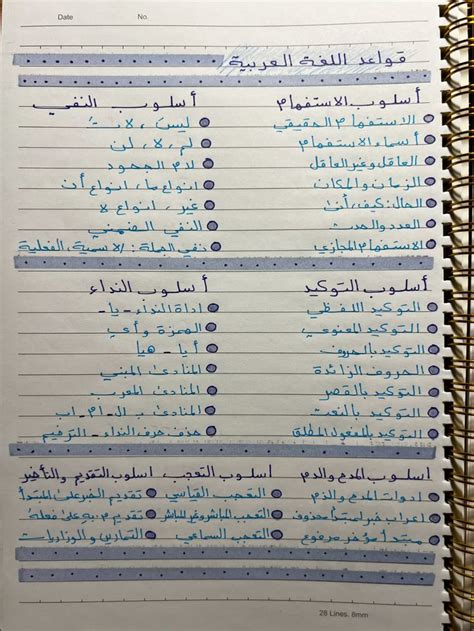 Date No.
قواعد اللغة العربية
أسلوب الاستفهام
الاستفهام الحقيقي
أسماء الاستفهام
العاقل وغير العاقل
الزمان والمكان
الحال: كيف، أنى
العدد والحدث
الاستفهام المجازي
أسلوب النفي
ليس، لات
لم، لا، لن
لام الجحود
انواع ما، انواع أن
غير، انواع لا
النفي الضمني
نفي الجملة: الاسمية، الفعلية
أسلوب التوكيد
التوكيد اللفظي
التوكيد المعنوي
التوكيد بالحروف
الحروف الزائدة
التوكيد بالقصر
التوكيد بالنعت
التوكيد بالمفعول المطلق
أسلوب النداء
اداة النداء - يا -
الهمزة وأي
أيا - هيا
المنادى المبني
المنادى المعرب
المنادى ب ال - ام - اب
حذف حرف النداء - الترخيم
اسلوب المدح والذم
ادوات المدح والذم
اعراب خبر لمبتدأ محذوف
مبتدأ مؤخر مرفوع
اسلوب التعجب
التعجب القياسي
التعجب المباشر وغير المباشر
التعجب السماعي
اسلوب التقديم والتأخير
تقديم الخبر على المبتدأ
تقديم م به على فعله
التمارين والوزاريات
28 Lines. 8mm